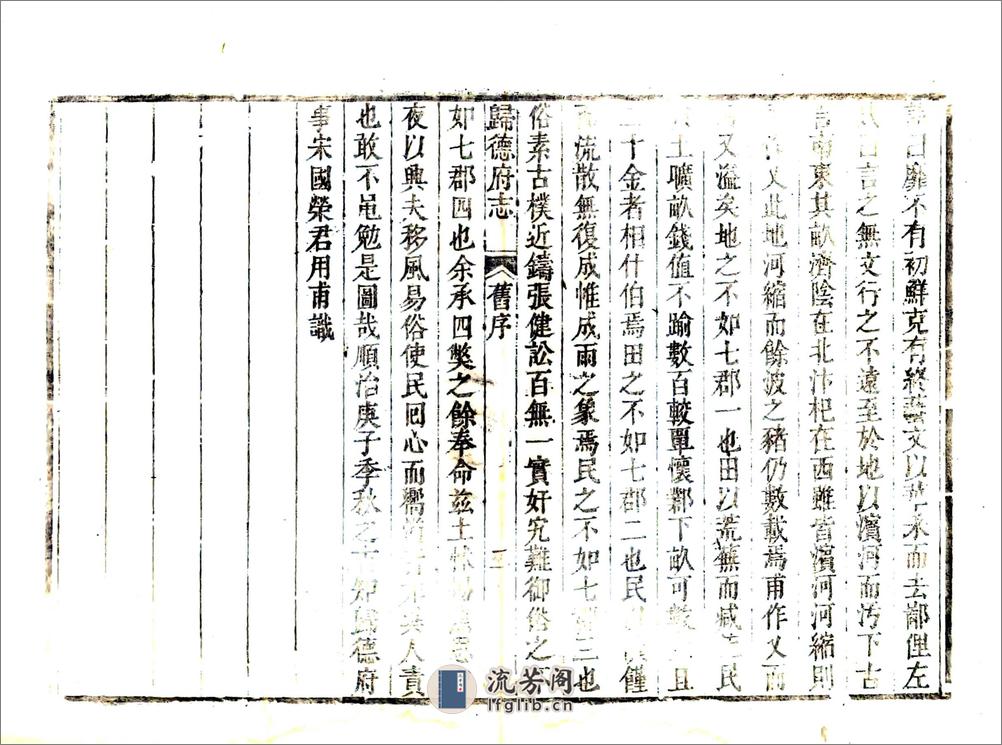 曰靡不有初鮮克有終文以求而去鄙俚左
曰言之無文行之不遠至於地以濱河而污下古
東其畝濟陰在北汴杞在西雖皆濱河河縮則
又此地河縮而餘波之豬仍數載焉甫作乂而
又溢矣地之不如七郡一也田以荒蕪而減民
土曠畝錢值不踰數百較覃懷郡下畝可數且
二十金者相什伯焉田之不如七郡二也民僅
流散無復成惟成雨之象焉民之不如七三也
俗素古樸近鑄張健訟百無一實奸宄難御俗之
歸德府志
舊序
三
如七郡四也余承四獘之餘奉命兹土怵惕
夜以興夫移風易俗使民回心而嚮人責
也敢不黽勉是圖哉順治庚子季秋之知歸德府
事宋國榮君用甫識
流芳阁
lfglib.cn